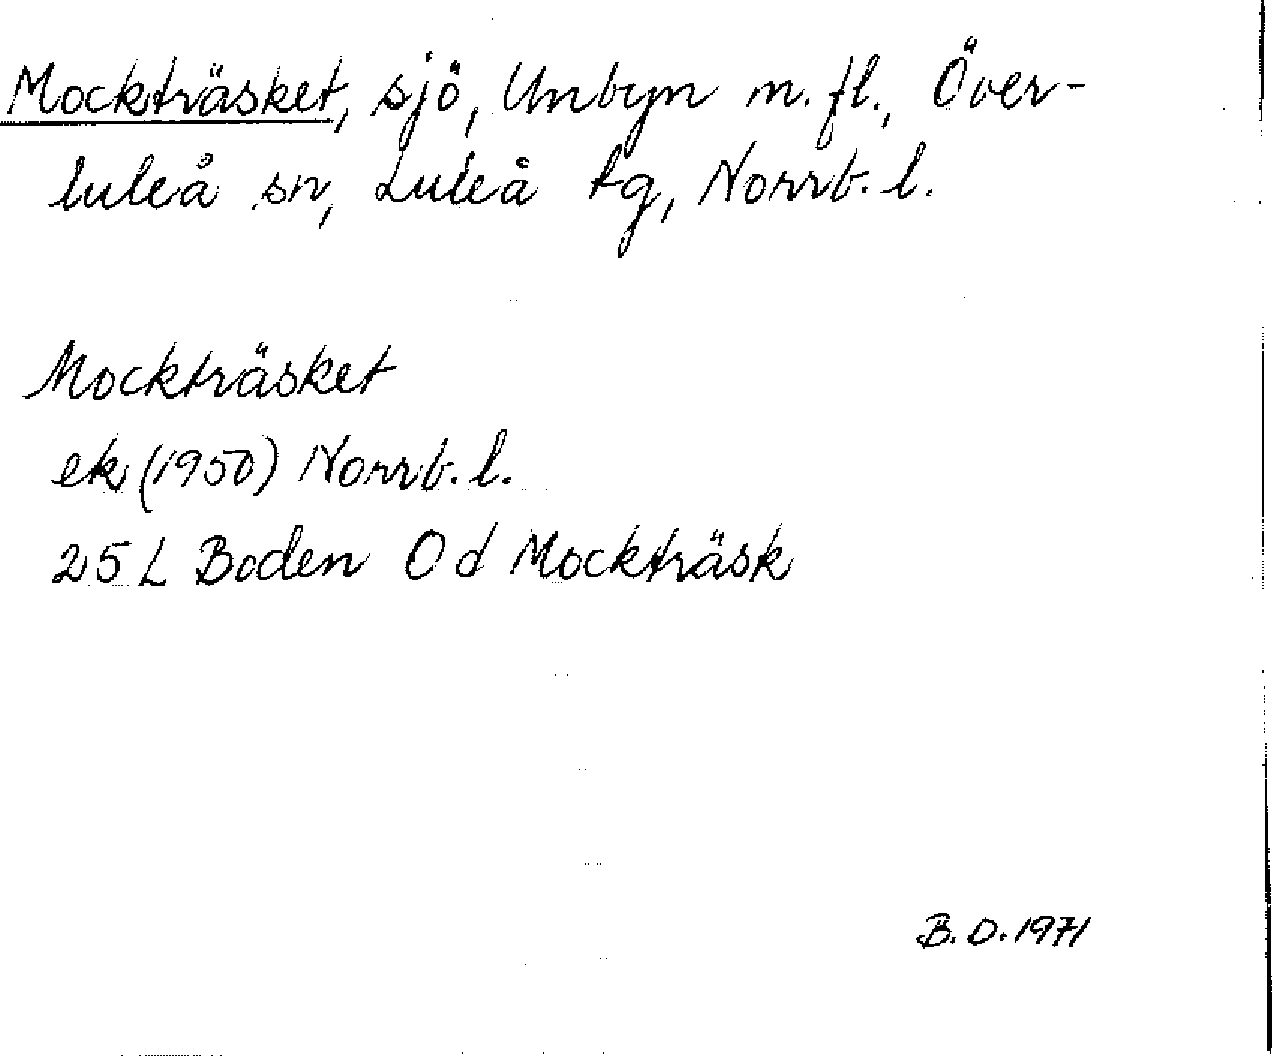 Mockträsket, sjö, Unbyn m.fl., Över-
luleå sn, Luleå tg, Norrb. l.
Mockträsket
ek (1950) Norrb. l.
25 L Boden Od Mockträsk
B.D. 1971